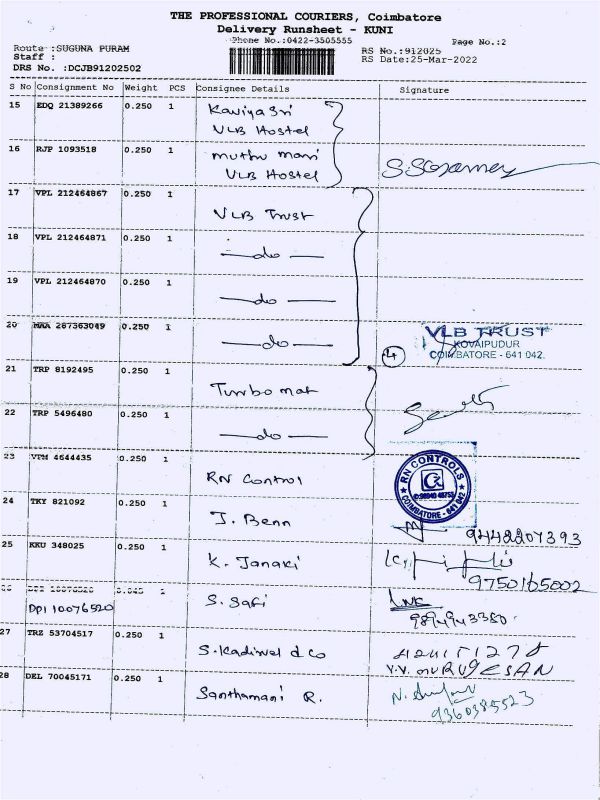 THE PROFESSIONAL COURIERS, Coimbatore
Delivery Runsheet - KUNI
Phone No.:0422-3505555
Page No.:2
Route :SUGUNA PURAM
RS No.:912025
Staff :
RS Date:25-Mar-2022
DRS No. :DCJB91202502
S No Consignment No Weight PCS Consignee Details Signature
15 EDQ 21389266 0.250 1 Kaviya Sri
VLB Hostel
16 RJP 1093518 0.250 1 muthu mari
VLB Hostel
17 VPL 212464867 0.250 1
VLB Trust
18 VPL 212464871 0.250 1
—do—
19 VPL 212464870 0.250 1
—do—
20 MAA 287363049 0.250 1
—do—
4
VLB TRUST
KOVAIPUDUR
COIMBATORE - 641 042.
21 TRP 8192495 0.250 1
Turbo mat
22 TRP 5496480 0.250 1
—do—
23 VPM 4644435 0.250 1
RN Control
RN CONTROLS
COIMBATORE - 641 042
24 TKY 821092 0.250 1
J. Benn
9442207393
25 KKU 348025 0.250 1
K. Janaki
9750165002
DPI 10076520
S. Safi
9894943380
27 TRZ 53704517 0.250 1
S. Kadirvel & co
V.V. MURUGESAN
28 DEL 70045171 0.250 1
Santhamani R.
9360385523